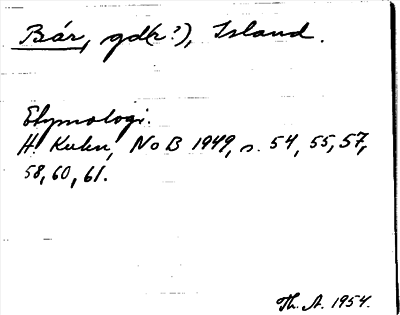 Bár, gd(r?), Island.
Etymologi.
H. Kuhn, NoB 1949, s. 54, 55, 57,
58, 60, 61.
Th. A. 1954.